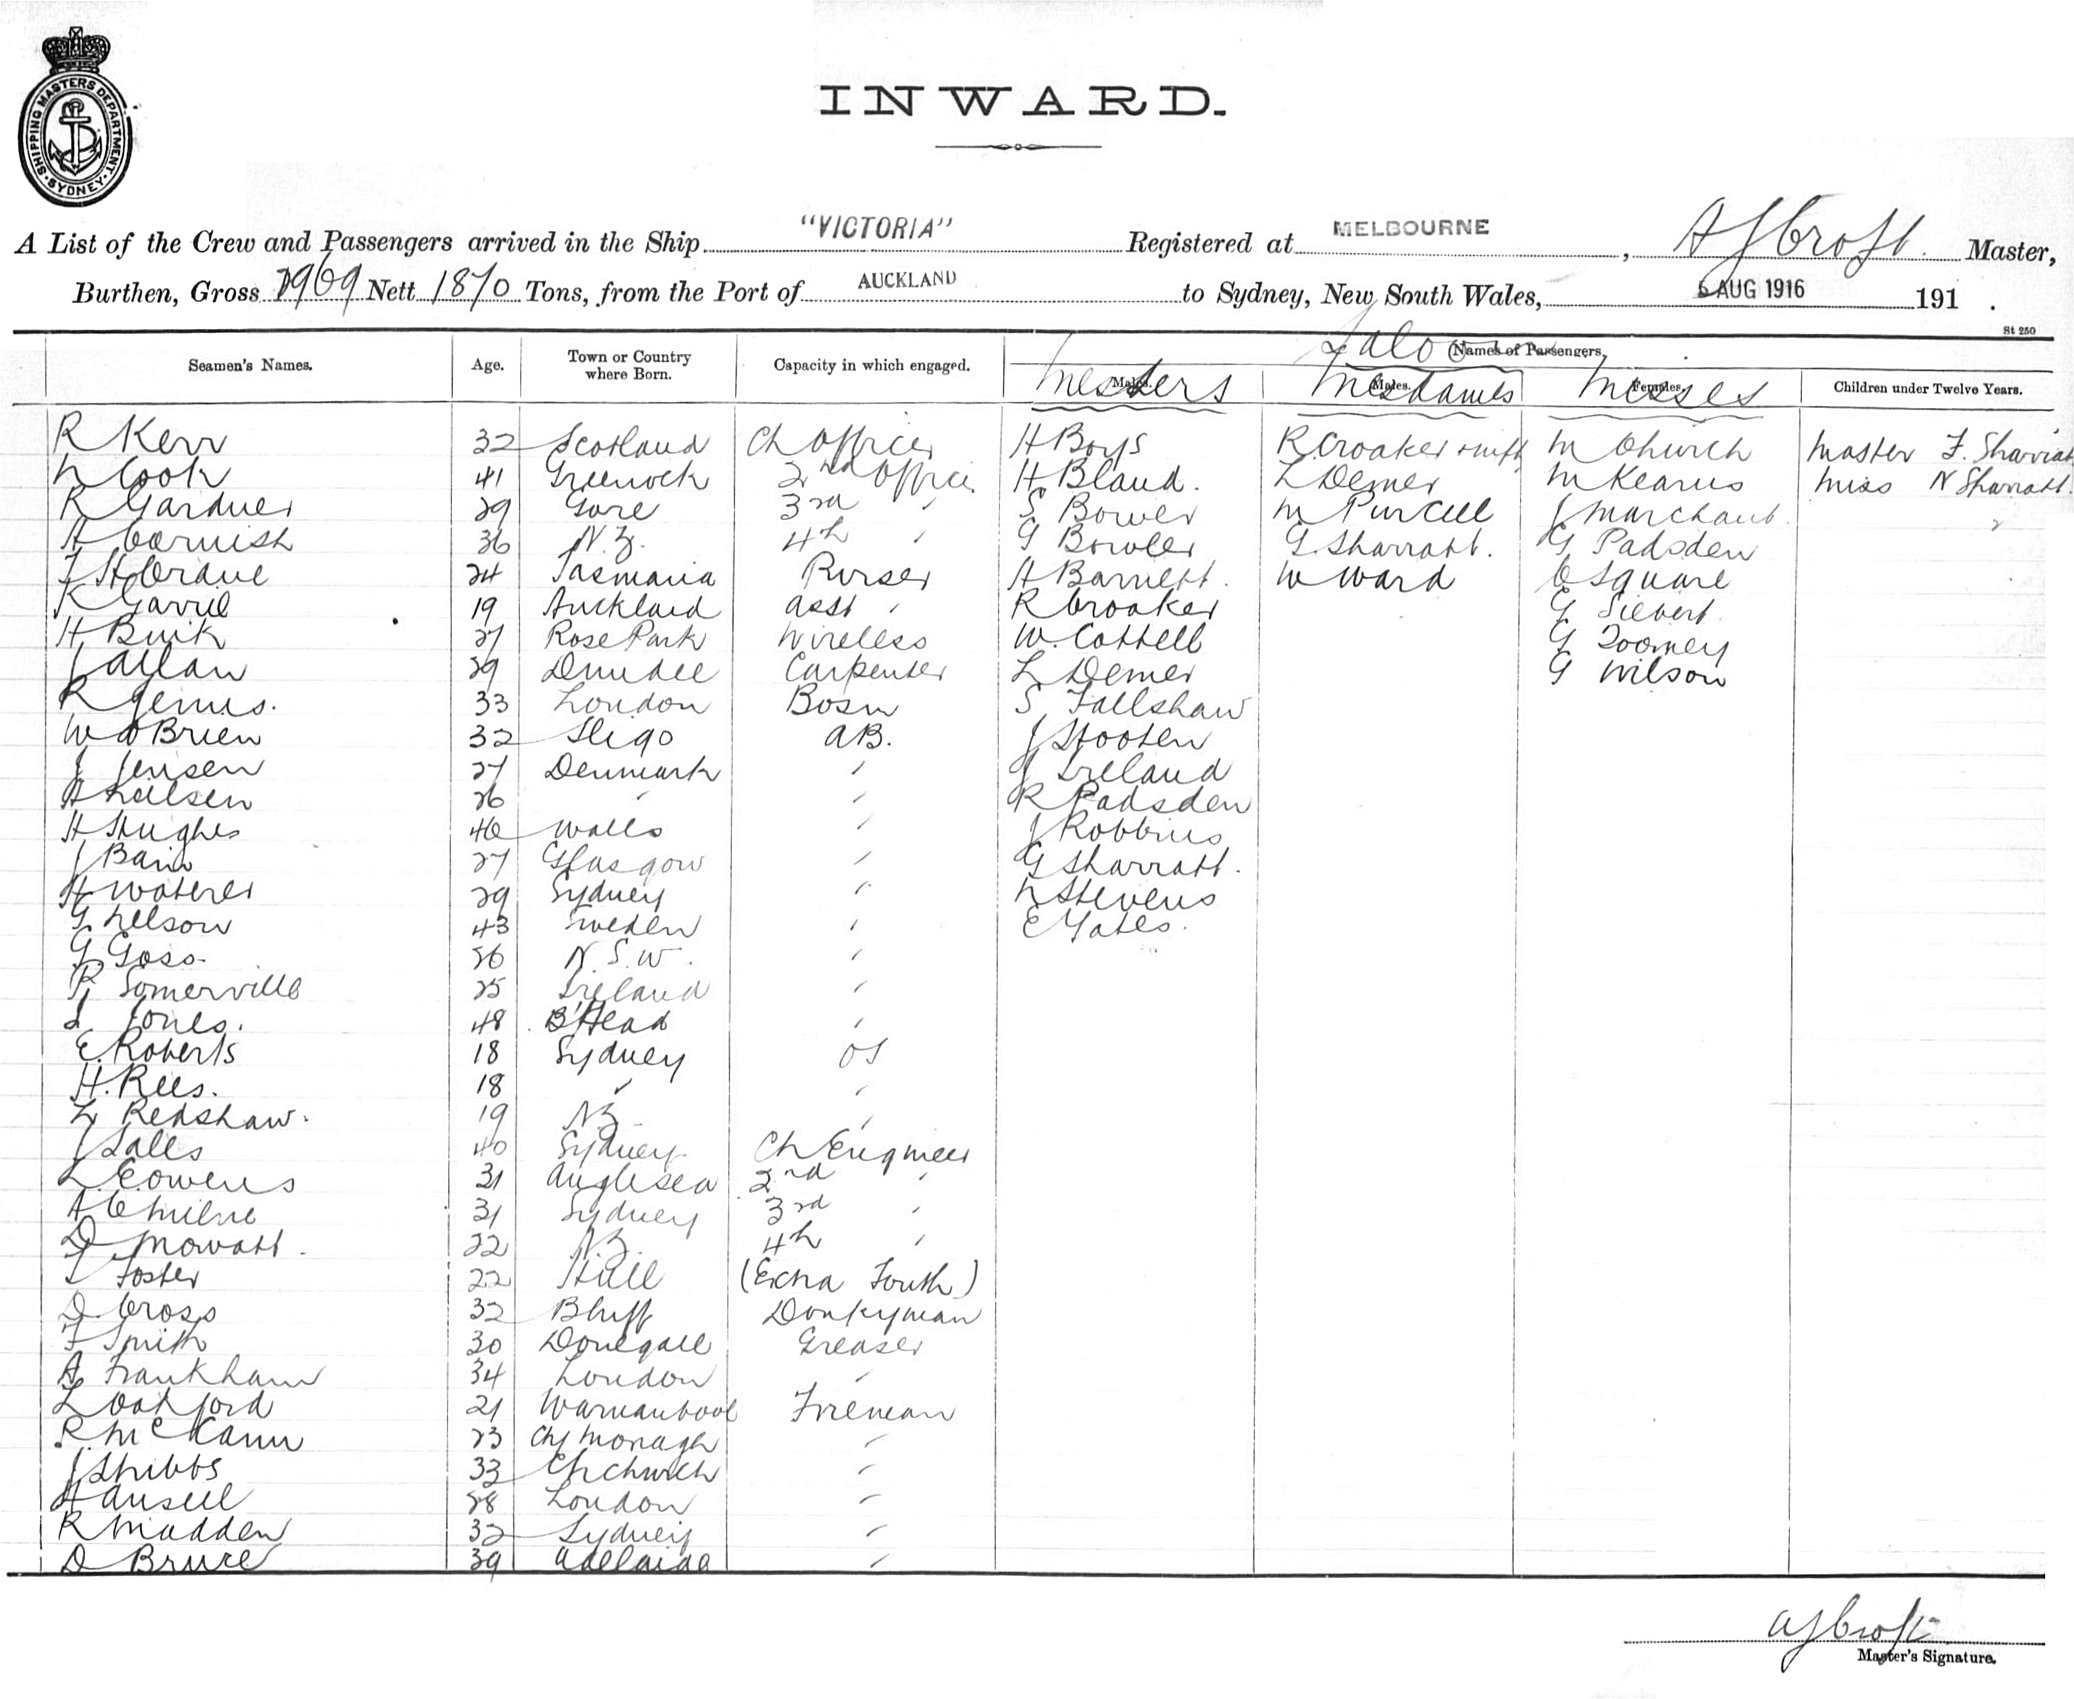 SHIPPING MASTERS DEPARTMENT
SYDNEY
INWARD.
A List of the Crew and Passengers arrived in the Ship "VICTORIA" Registered at MELBOURNE, A J Croft. Master,
Burthen, Gross 2969 Nett 1870 Tons, from the Port of AUCKLAND to Sydney, New South Wales, 6 AUG 1916 191 .
St 250
Saloon Names of Passengers.
Seamen's Names. Age. Town or Country where Born. Capacity in which engaged. Males. Messers Males. Mesdames Females. Misses Children under Twelve Years.
R Kerr 32 Scotland Ch Officer H Boys R Croaker M Church Master F. Sharratt
N Cook 41 Greenock 2nd Officer H Bland. L Demer M Kearns Miss N Sharratt.
R Gardner 29 Gore 3rd " S Bower M Purcell J Marchant.
A Cornish 36 N.Z. 4th " G Bowler G. Sharratt. G Padsden
F H Crane 24 Tasmania Purser H Barnett. W Ward C Square
K Garvie 19 Auckland Asst " R Croaker G Siebert
H Buik 27 Rose Park Wireless W. Cottell G Toomey
J Allan 29 Dundee Carpenter L Demer G Wilson
R Jenns. 33 London Bosn S Fallshaw
W O'Brien 32 Sligo AB. J Hooten
J Jensen 27 Denmark " J Ireland
A Nielsen 26 " " R Padsden
H Hughes 46 Wales " J Robbins
J Bain 27 Glasgow " G Sharratt.
H Waterer 29 Sydney " N Stevens
G Nelson 43 Sweden " E Yates.
G. Goss. 26 N.S.W. "
P Somerville 25 Ireland "
J Jones. 48 B'Head "
E. Roberts 18 Sydney OS
H. Rees. 18 " "
L Redshaw. 19 NZ "
J Salls 40 Sydney Ch Engineer
L. E. Owens 31 Anglesea 2nd "
A C Milne 31 Sydney 3rd "
D Mowatt. 22 N.Z. 4th "
T Foster 22 Hull (Extra Fourth)
D Cross 32 Bluff Donkyman
F Smith 30 Donegall Greaser
A Frankham 34 London "
L Oakford 21 Warnambool Fireman
R. McCann 23 Cty Monagh "
J Stibbs 33 Chchurch "
H Ansell 28 London "
R Madden 32 Sydney "
D Bruce 39 Adelaide "
A J Croft
Master's Signature.